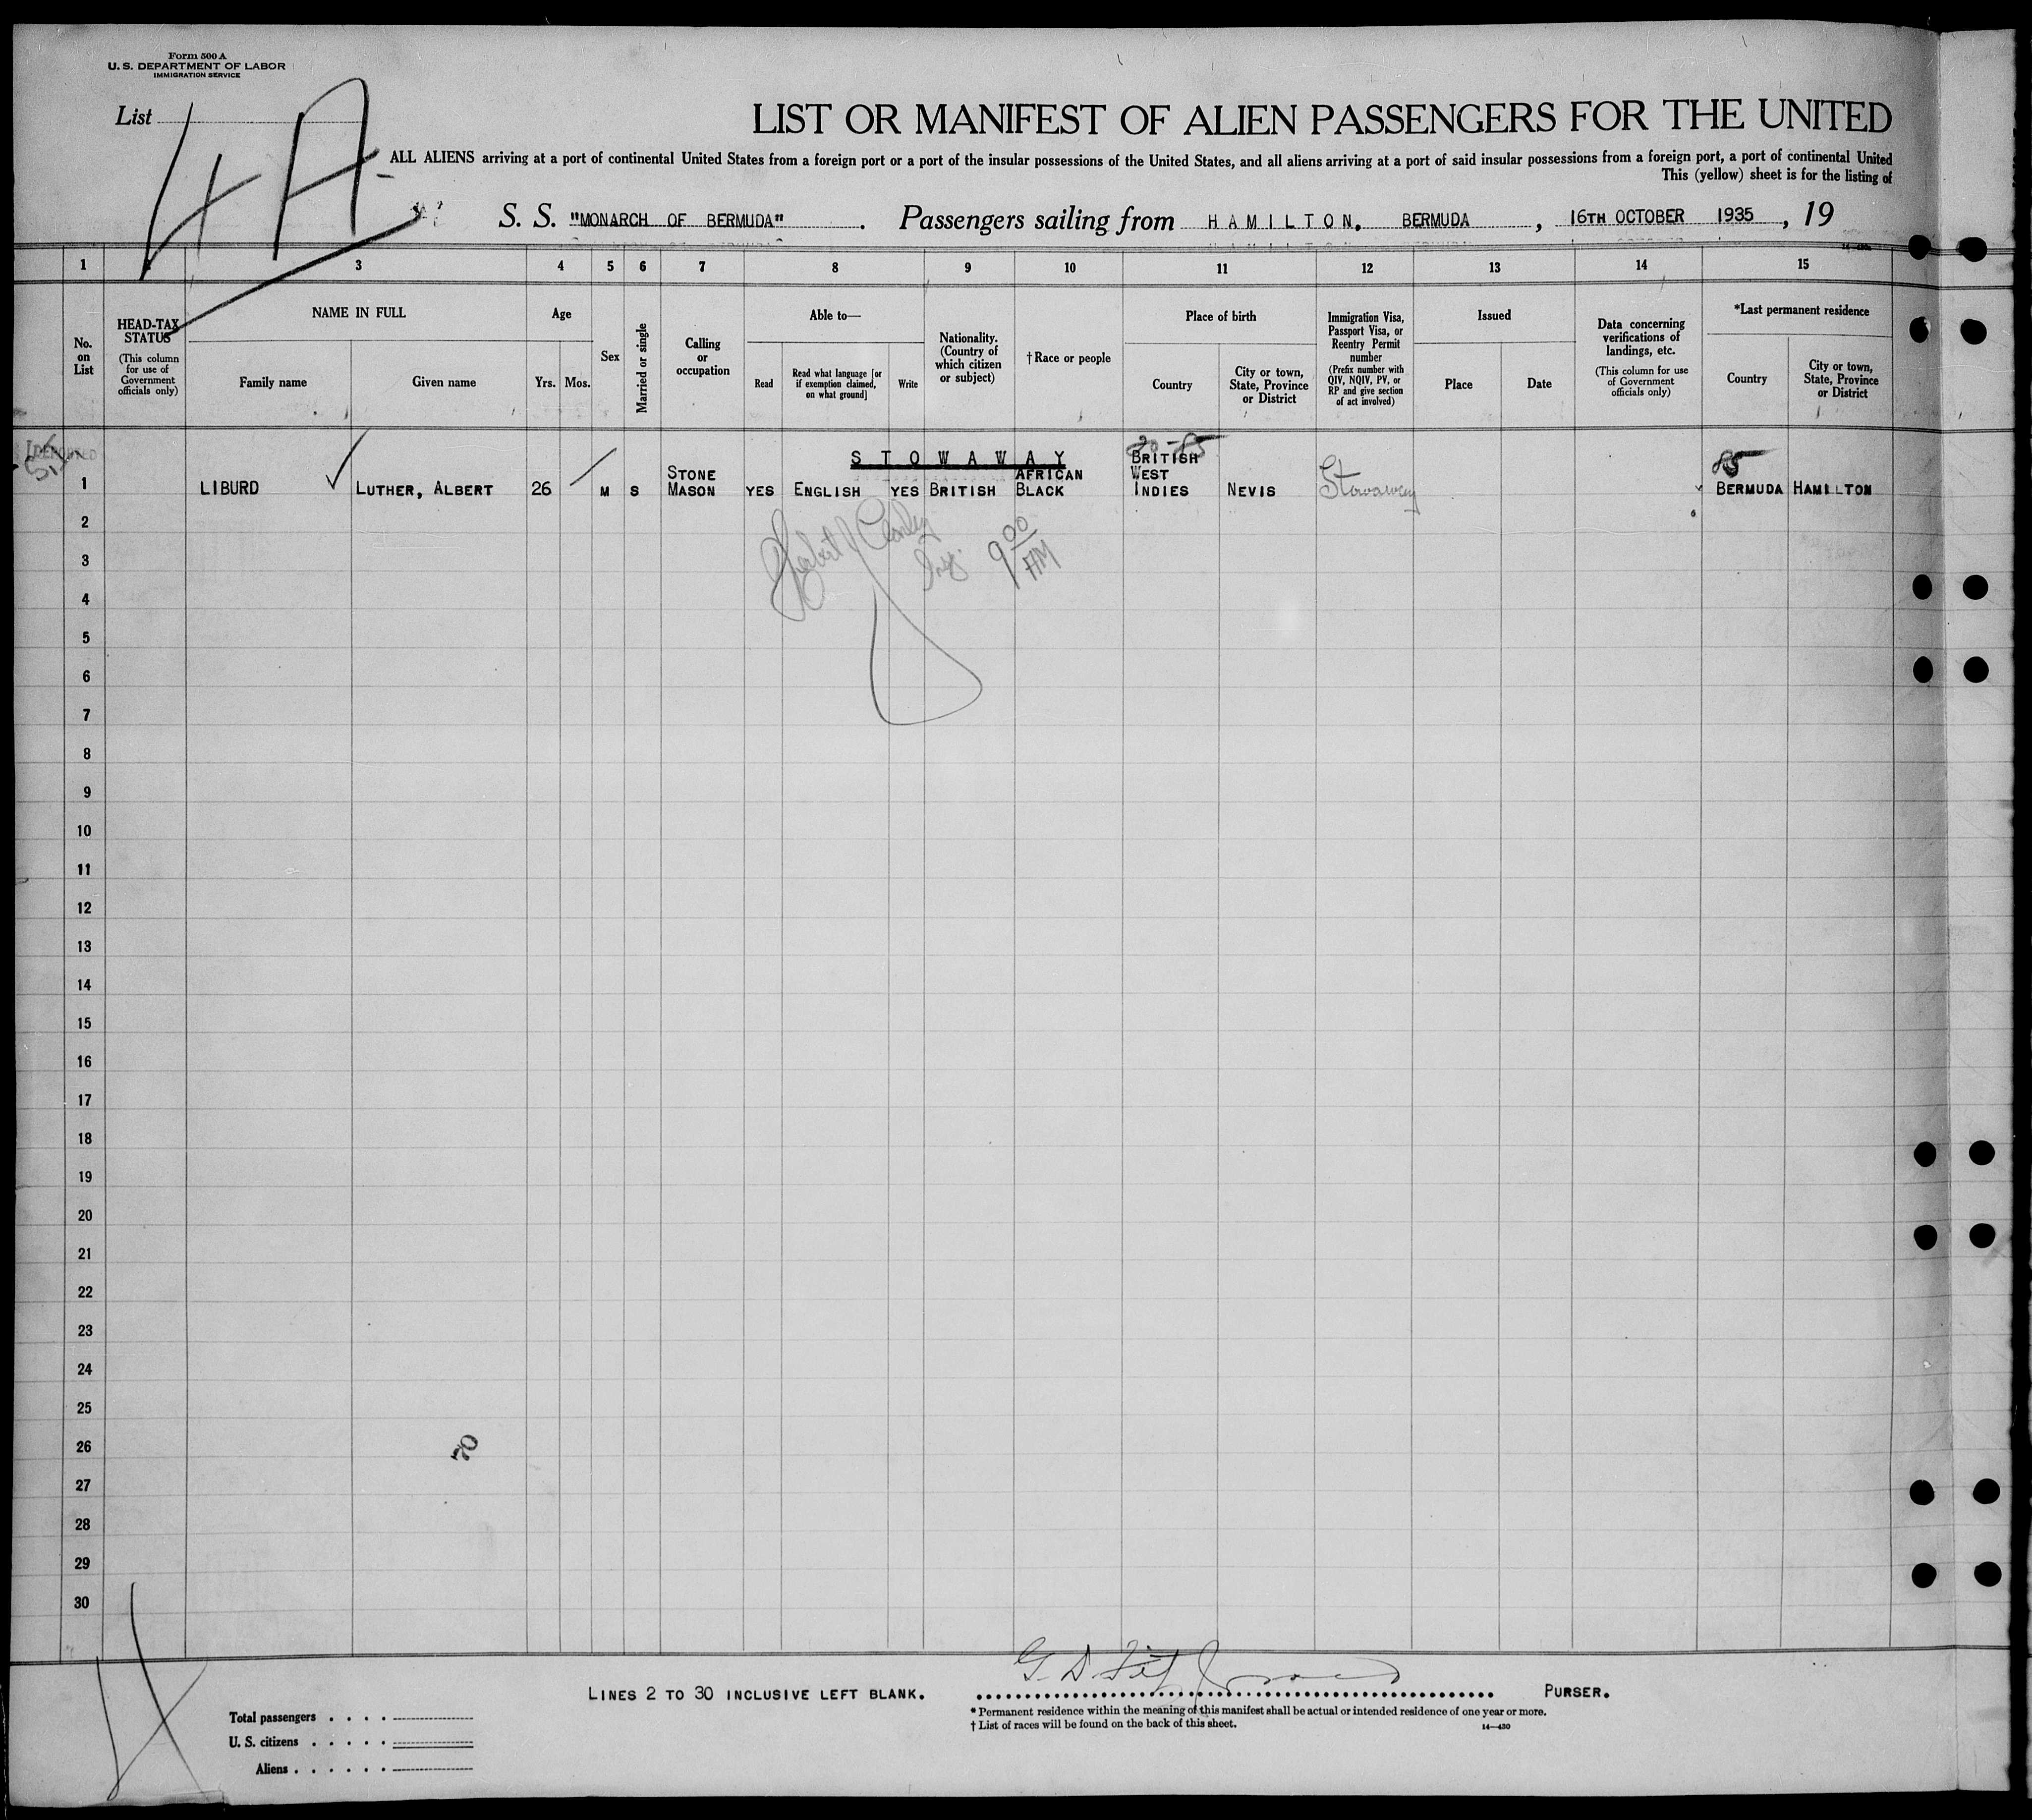 Form 500 A
U. S. DEPARTMENT OF LABOR
IMMIGRATION SERVICE
List
4A
LIST OR MANIFEST OF ALIEN PASSENGERS FOR THE UNITED
ALL ALIENS arriving at a port of continental United States from a foreign port or a port of the insular possessions of the United States, and all aliens arriving at a port of said insular possessions from a foreign port, a port of continental United
This (yellow) sheet is for the listing of
S. S. "MONARCH OF BERMUDA". Passengers sailing from HAMILTON, BERMUDA, 16TH OCTOBER 1935, 19
1 3 4 5 6 7 8 9 10 11 12 13 14 15
No. on List
HEAD-TAX STATUS
(This column for use of Government officials only)
NAME IN FULL
Family name
Given name
Age
Yrs. Mos.
Sex
Married or single
Calling or occupation
Able to—
Read
Read what language [or if exemption claimed, on what ground]
Write
Nationality. (Country of which citizen or subject)
†Race or people
Place of birth
Country
City or town, State, Province or District
Immigration Visa, Passport Visa, or Reentry Permit number
(Prefix number with QIV, NQIV, PV, or RP and give section of act involved)
Issued
Place
Date
Data concerning verifications of landings, etc.
(This column for use of Government officials only)
*Last permanent residence
Country
City or town, State, Province or District
STOWAWAY
1 LIBURD LUTHER, ALBERT 26 M S STONE MASON YES ENGLISH YES BRITISH AFRICAN BLACK BRITISH WEST INDIES NEVIS Stowaway 85 BERMUDA HAMILTON
9 00 AM
2
3
4
5
6
7
8
9
10
11
12
13
14
15
16
17
18
19
20
21
22
23
24
25
26
27
28
29
30
70
LINES 2 TO 30 INCLUSIVE LEFT BLANK.
PURSER.
Total passengers
U. S. citizens
Aliens
* Permanent residence within the meaning of this manifest shall be actual or intended residence of one year or more.
† List of races will be found on the back of this sheet.
14—430